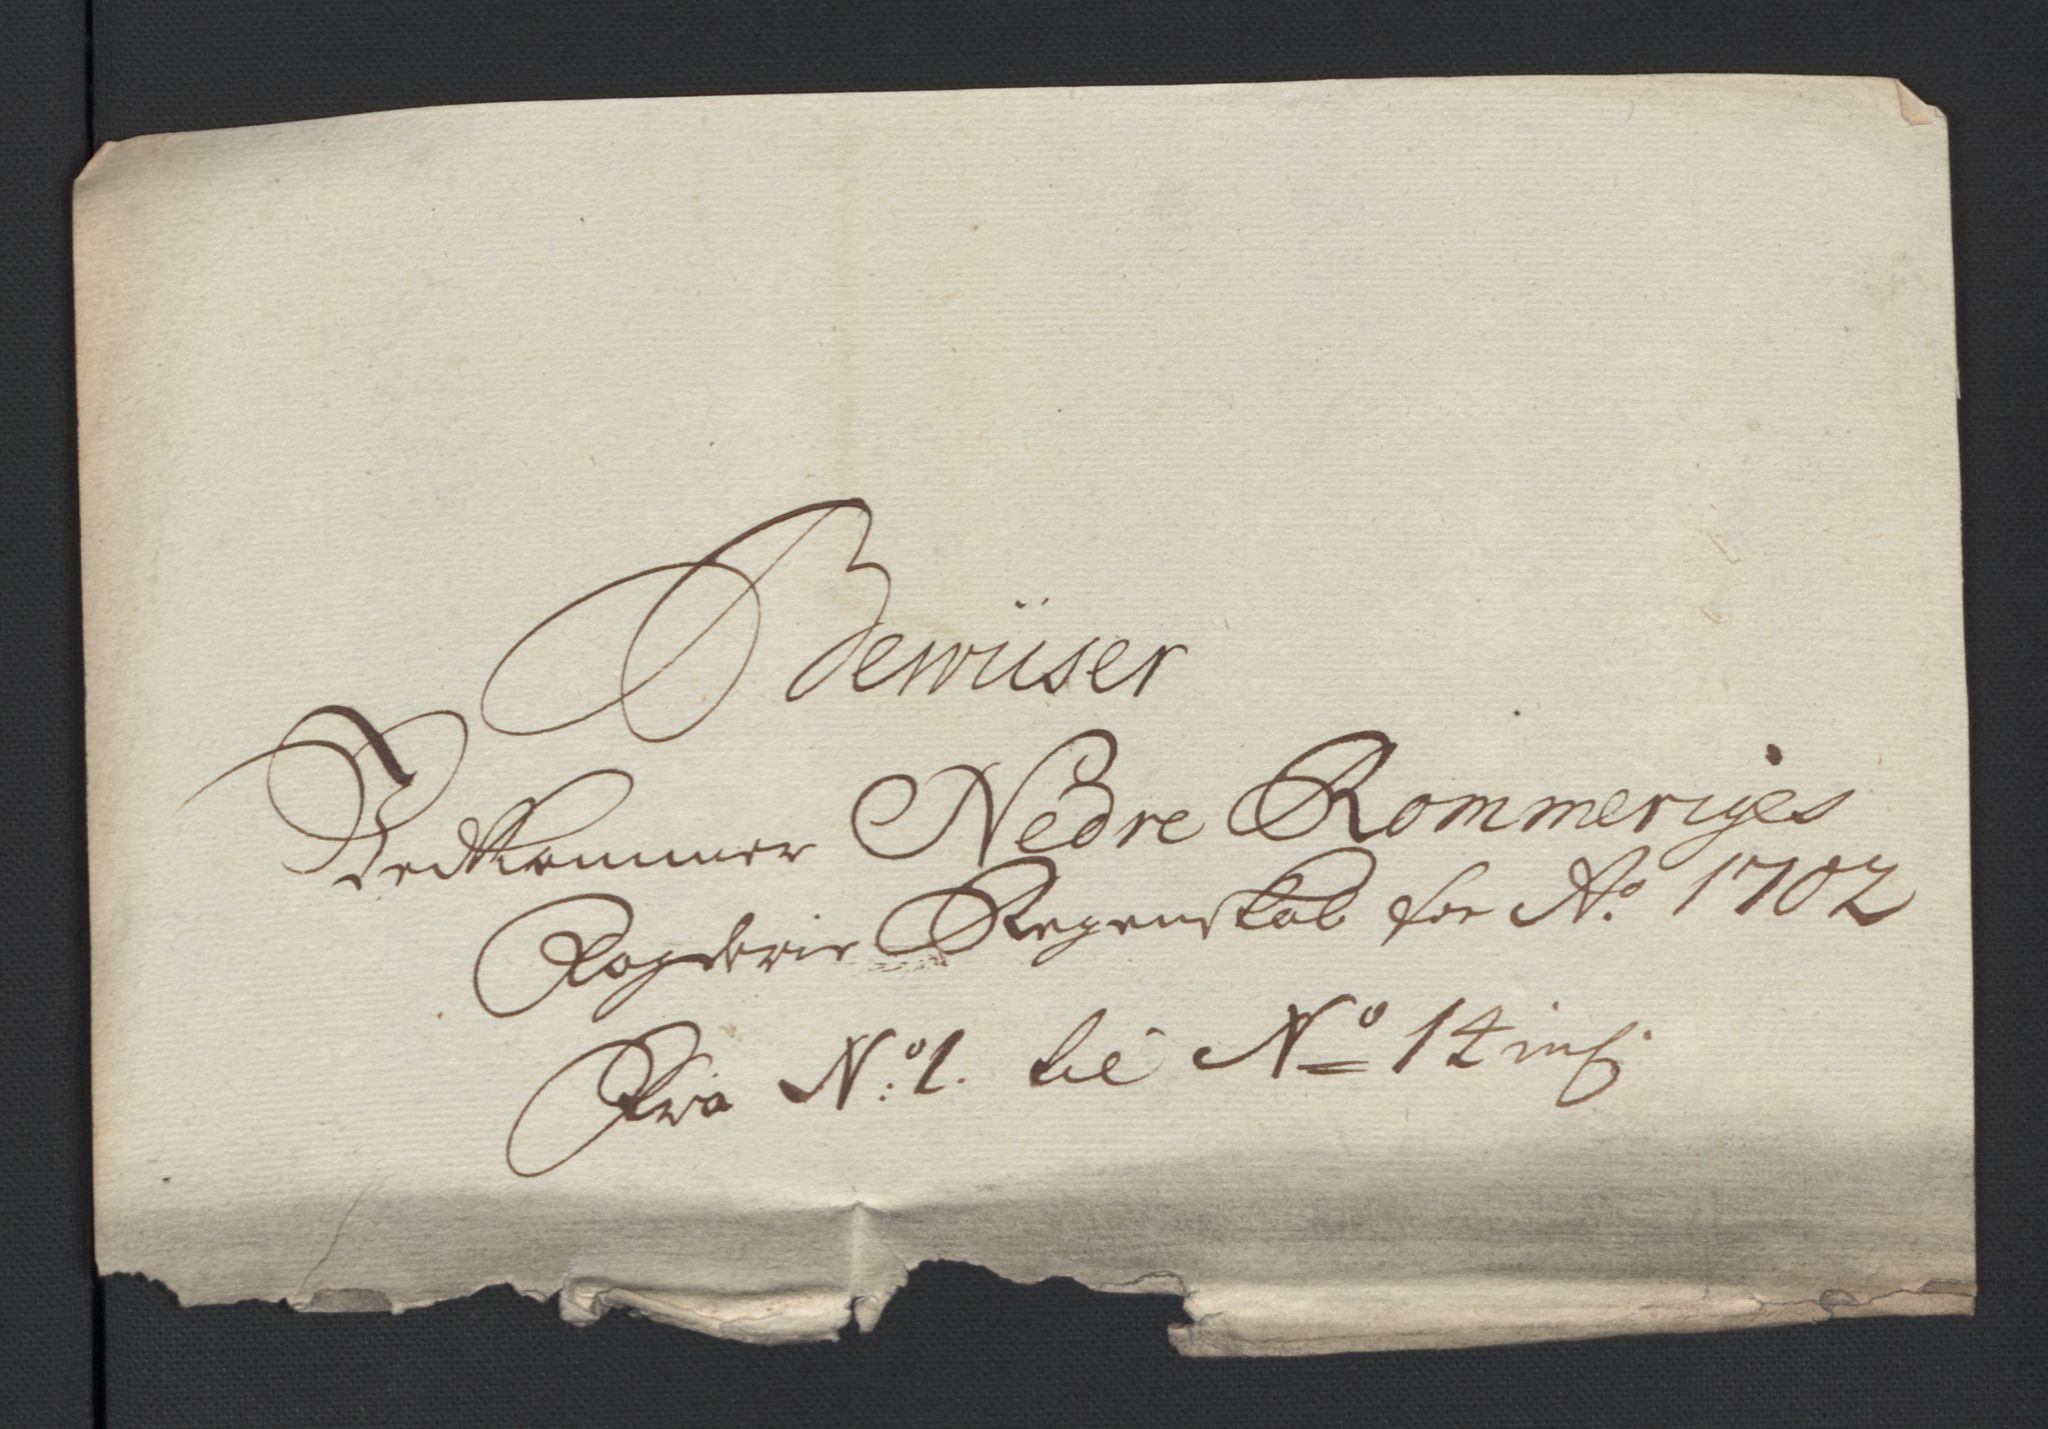 Bewiiser
Vedkommer Nedre Rommeriges
Fogderie Regenskab for Ao. 1702
Fra No. 1. til No 14 incl.